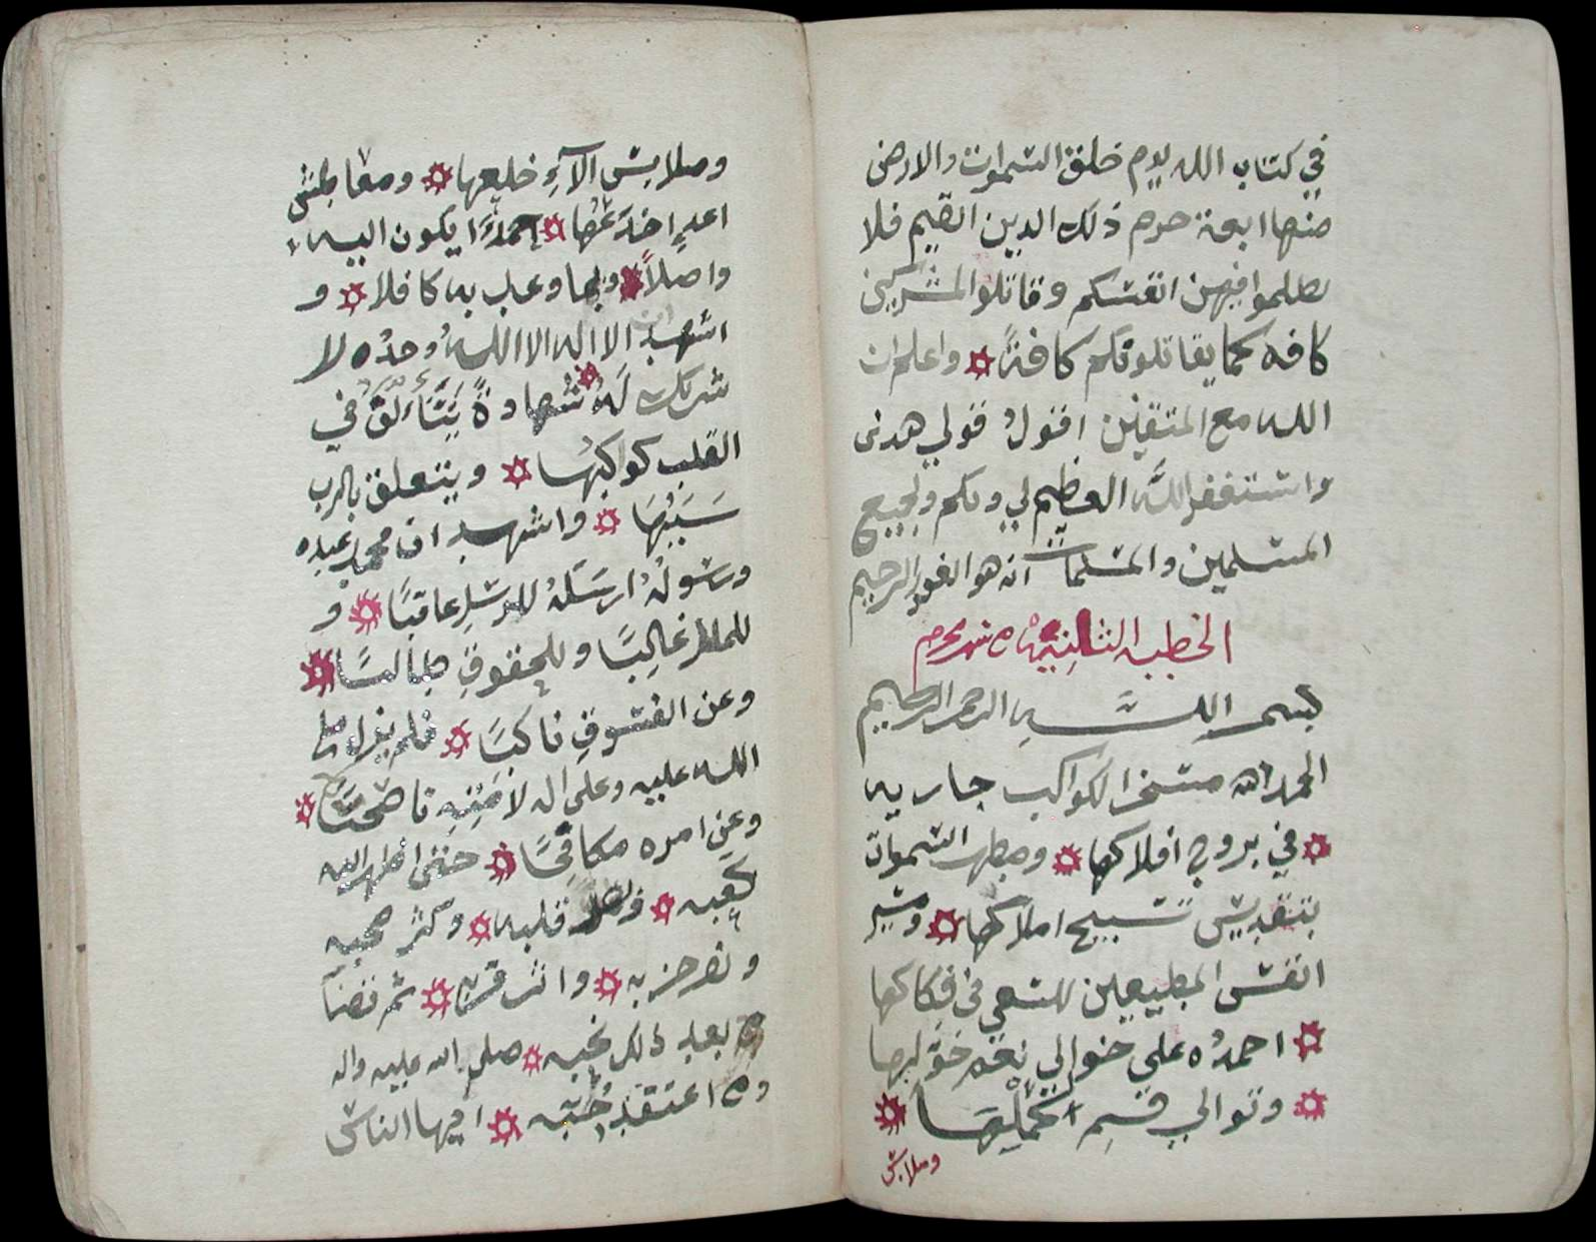 في كتاب الله يوم خلق السموات والارض
منها ابعة حرم ذلك الدين القيم فلا
تظلموا فيهن انفسكم وقاتلوا المشركين
كافه كما يقاتلونكم كافةً واعلم ان
الله مع المتقين اقولُ قولي هدى
واستغفر اللَّه العظيم لي ولكم ولجميع
المسلمين والمسلمات انه هو الغفور الرحيم
الخطبه الثانيه ٥ شهر محرم
بسم اللَّهِ الرحمن الرحيم
الحمد لله مسخر الكواكب جاريه
في بروج افلاكها ومطهر السموات
بتقديس تسبيح املاكها ومسير
انفس المطيعين للسعي في فكاكها
احمدُه على خوالي نعم خوَّلها
وتوالي قسمِ اكملها
وملابس
وملابس الآءِ خلعها ومعاطس
اعداءٍ اخذَعَها احمدَهُ ا يكون اليه
واصلاً وبما وعد به كافلا و
اشهد ان لا اله الا اللهُ وحدُه لا
شريك لَهُ شهادةً يَتَأَلَّقُ في
القلب كواكبُها ويتعلق بالرب
سَبَبُهَا واشهد ان محمد عبده
ورسولهُ ارسَلَهُ للرسلِ عاقبًا و
للملل غالِبًا وللحقوقِ طالبًا
وعن الفسوقِ ناكبًا فلم يزل صلى
الله عليه وعلى اله لامتِهِ ناصحًا
وعن امره مكافحًا حتى اظهر الله
كعبه وطهر قلبه وكثر صحبه
ونصر حزبه وانثر قربه ثم قضا
بعد ذلك نحبه صلى الله عليه واله
وه اعتقد حُبَّه ايها الناس